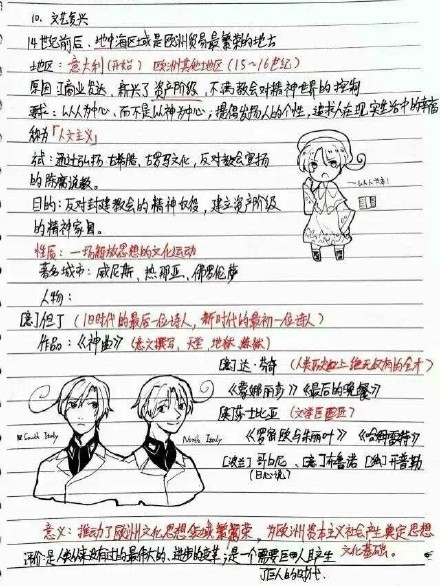 10. 文艺复兴
14世纪前后、地中海区域是欧洲贸易最繁荣的地方
地区：意大利(开始) 欧洲其他地区(15～16世纪)
原因：工商业发达，新兴了资产阶级，不满教会对精神世界的控制
要求：以人为中心，而不是以神为中心；提倡发扬人的个性，追求人在现实生活中的幸福
称为「人文主义」
方式：通过弘扬古希腊、古罗马文化，反对教会宣扬
的陈腐说教。
目的：反对封建教会的精神奴役，建立资产阶级
的精神家园。
性质：一场解放思想的文化运动
著名城市：威尼斯、热那亚、佛罗伦萨
人物：
[意]但丁(旧时代的最后一位诗人，新时代的最初一位诗人)
作品：《神曲》(意文撰写，天堂 地狱 炼狱)
[意]达·芬奇 (人类历史上绝无仅有的全才)
《蒙娜丽莎》《最后的晚餐》
[英]莎士比亚 (文学巨匠)
South Italy
North Italy
《罗密欧与朱丽叶》《哈姆雷特》
[波兰]哥白尼、[意]布鲁诺 [德]开普勒
(日心说)
意义：推动了欧洲文化思想领域繁荣，为欧洲资本主义社会产生奠定思想
文化基础。
评价：是人类从来没有过的最伟大的、进步的变革；是一个需要巨人且产生
了巨人的时代.